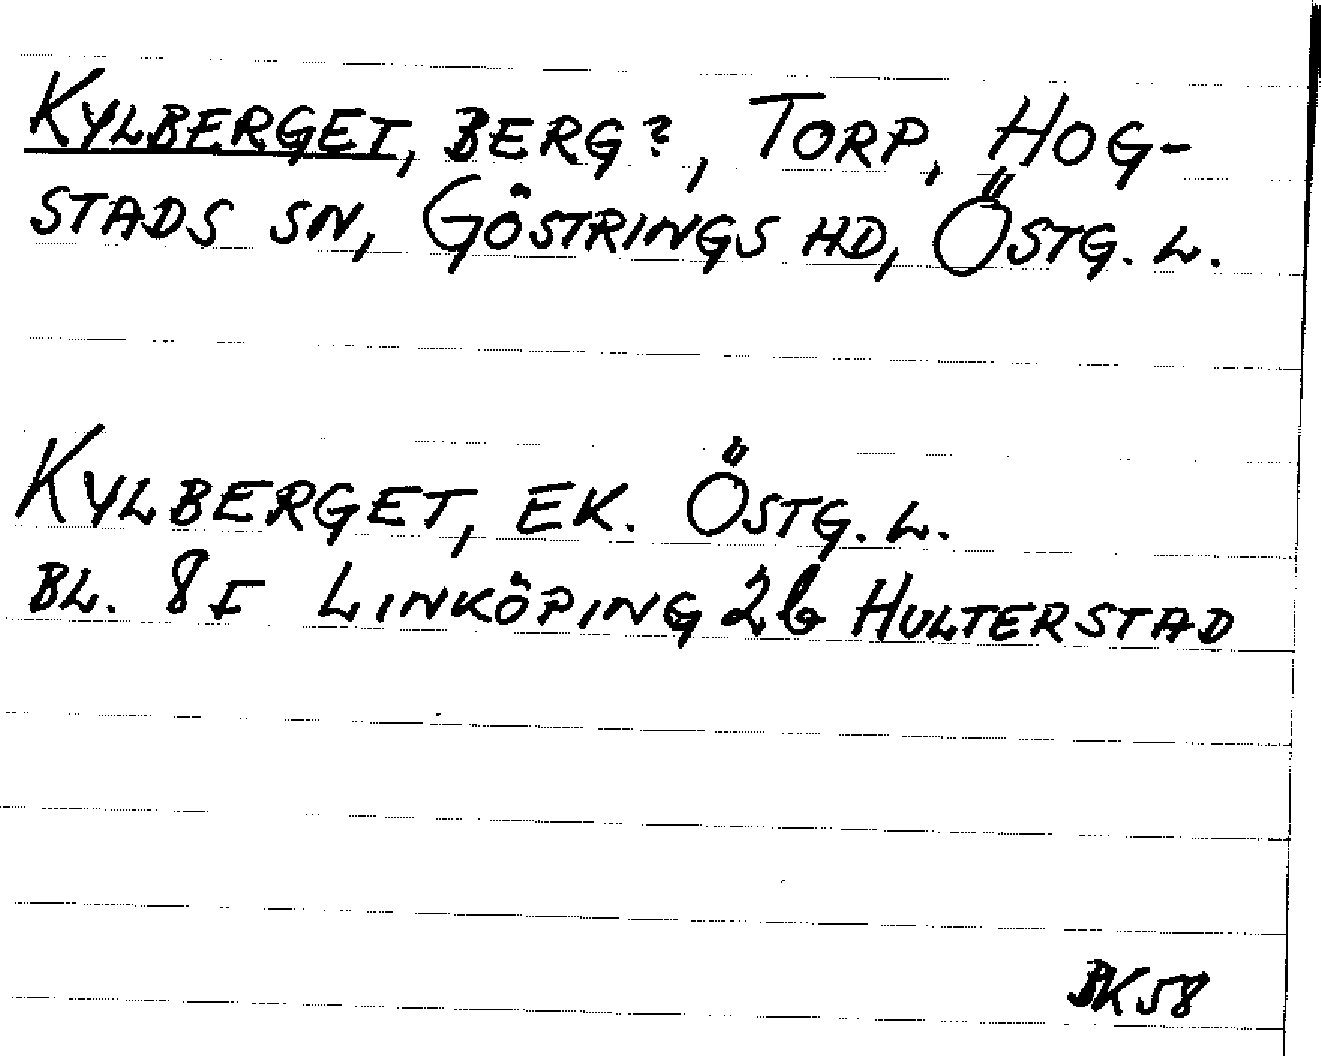 KYLBERGET, BERG?, TORP, HOG-
STADS SN, GÖSTRINGS HD, ÖSTG. L.
KYLBERGET, EK. ÖSTG. L.
BL. 8F LINKÖPING 2b HULTERSTAD
BK58